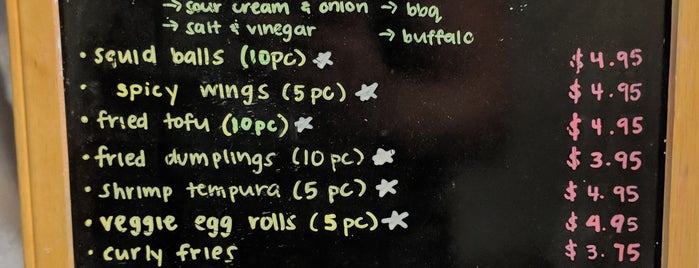 → sour cream & onion → bbq
→ salt & vinegar → buffalo
• squid balls (10pc) ☆ $4.95
• spicy wings (5pc) ☆ $4.95
• fried tofu (10pc) ☆ $4.95
• fried dumplings (10 pc) ☆ $3.95
• shrimp tempura (5 pc) ☆ $4.95
• veggie egg rolls (5pc) ☆ $4.95
• curly fries $3.75